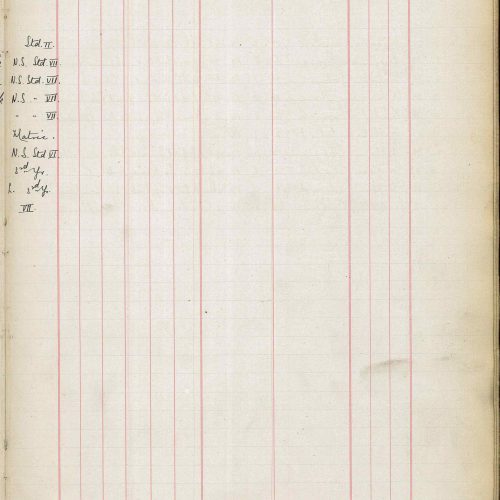 Std. II.
N.S. Std. VII.
N.S. Std. VII.
N.S. " VII.
" " VII.
Matric.
N.S. Std VI.
3rd Yr.
3rd Yr.
VII